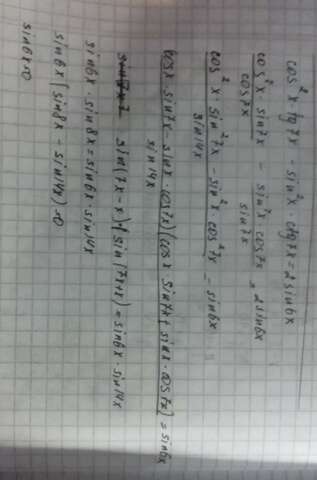 cos²x · tg7x - sin²x · ctg7x = 2 sin6x
cos²x sin7x / cos7x - sin²x cos7x / sin7x = 2 sin6x
cos²x · sin²7x - sin²x · cos²7x / sin14x = sin6x
(cosx · sin7x - sinx · cos7x)(cosx sin7x + sinx · cos7x) / sin14x = sin6x
sin(7x-x) · sin(7x+x) = sin6x · sin14x
sin6x · sin8x = sin6x · sin14x
sin6x (sin8x - sin14x) = 0
sin6x = 0